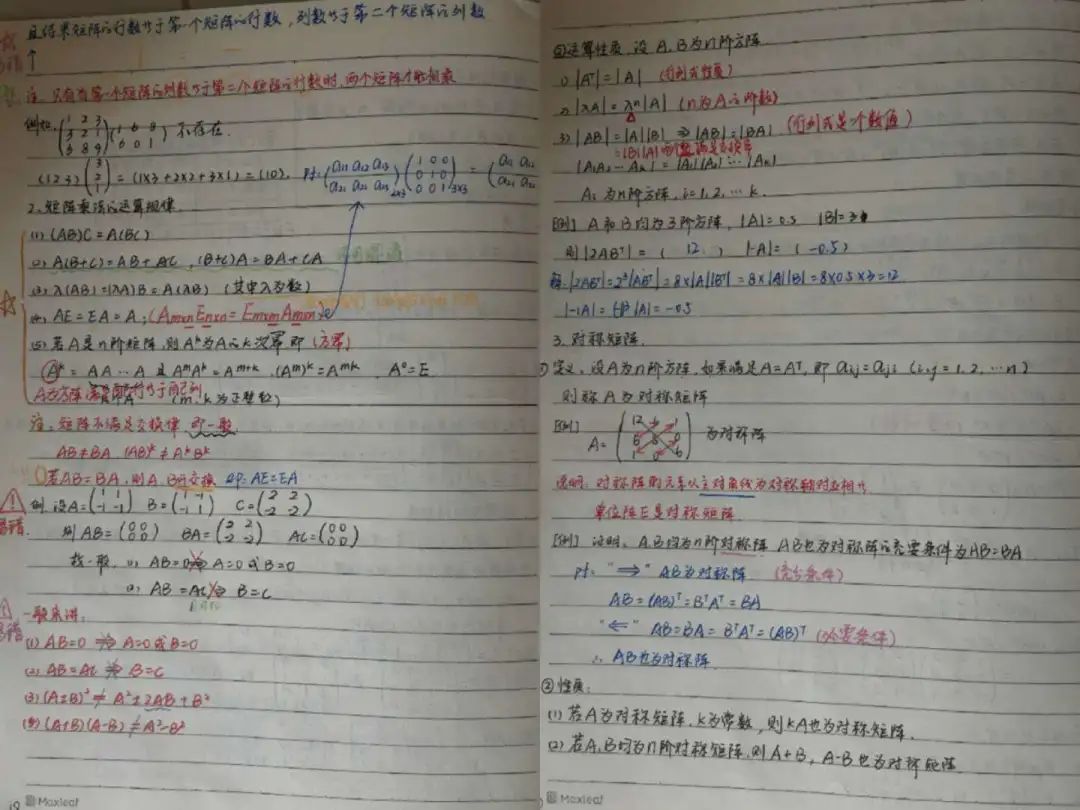 且结果矩阵的行数等于第一个矩阵的行数,列数等于第二个矩阵的列数
注:只有当第一个矩阵的列数等于第二个矩阵的行数时,两个矩阵才能相乘
例如:(1 2 3; 3 2 1; 3 8 9)(1 6 8; 6 0 1) 不存在.
(1 2 3)(3; 2; 1) = (1×3+2×2+3×1) = (10).
(a11 a12 a13; a21 a22 a23)2×3 (1 0 0; 0 1 0; 0 0 1)3×3 = (a11 a12; a21 a22
2.矩阵乘法的运算规律.
(1) (AB)C = A(BC)
(2) A(B+C) = AB + AC , (B+C)A = BA + CA
(3) λ(AB) = (λA)B = A(λB) (其中λ为数)
(4) AE = EA = A ; (Am×n En×n = Em×m Am×n)
(5) 若A是n阶矩阵,则A^k为A的k次幂 即 (方幂)
A^k = AA…A 且 A^m A^k = A^(m+k) , (A^m)^k = A^(mk) A^0 = E
A为方阵
(m, k为正整数)
注:矩阵不满足交换律,即一般
AB≠BA (AB)^k ≠ A^k B^k
若AB=BA,则A、B可交换 AE=EA
易错
例 设A=(1 1; -1 -1) B=(1 -1; -1 1) C=(2 2; -2 -2)
则 AB=(0 0; 0 0) BA=(2 2; -2 -2) AC=(0 0; 0 0)
故一般,(1) AB=0 ⇏ A=0或B=0
(2) AB=AC ⇏ B=C
易错
一般来讲:
(1) AB=0 ⇏ A=0或B=0
(2) AB=AC ⇏ B=C
(3) (A±B)² ≠ A²±2AB+B²
(4) (A+B)(A-B) ≠ A²-B²
Maxleaf
④运算性质 设A,B为n阶方阵
1) |A^T|=|A| (行列式性质)
2) |λA|=λ^n|A| (n为A的阶数)
3) |AB|=|A||B| ⇒ |AB|=|BA| (行列式是个数值)
=|B||A|
|A1A2…Ak|=|A1||A2|…|Ak|
Ai为n阶方阵,i=1,2,…k.
[例] A和B均为3阶方阵,|A|=0.5 |B|=3
则|2AB^T|=( 12 ) |-A|=( -0.5 )
解:|2AB^T|=2³|AB^T|=8×|A||B^T|=8×|A||B|=8×0.5×3=12
|-1A|=(-1)³|A|=-0.5
3.对称矩阵.
①定义:设A为n阶方阵,如果满足A=A^T,即 aij=aji (i,j=1,2,…n)
则称A为对称矩阵
[例] A=(12 6 1; 6 8 0; 1 0 6) 为对称阵
说明:对称阵的元素以主对角线为对称轴对应相等
单位阵E是对称矩阵.
[例] 证明:A,B均为n阶对称阵 AB也为对称阵的充要条件为AB=BA
Pf: "⇒" AB为对称阵 (充分条件)
AB=(AB)^T=B^T A^T=BA
"⇐" AB=BA=B^T A^T=(AB)^T (必要条件)
∴ AB也为对称阵.
②性质:
(1) 若A为对称矩阵,k为常数,则kA也为对称矩阵.
(2) 若A,B均为n阶对称矩阵,则A+B, A-B也为对称矩阵.
Maxleaf